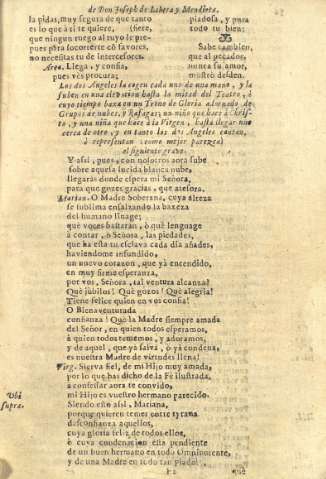 de Don Joseph de Labera y Mendieta.
la pidas, muy segura de que tanto
es lo que à sì te quiere,
que ningun ruego al tuyo se pre-
fiere,
pues para socorrerte cõ favores,
no necessitas tu de intercessores.
Llega, y confia,
pues vès procura;
piadosa, y pura
todo tu bien:
Sabe tambien,
que al pecador,
nunca su amor,
mostrò desden.
Los dos Angeles la cogen cada uno de una mano, y la
suben en una elevacion hasta la mitad del Teatro, à
cuyo tiempo baxa en un Trono de Gloria adornado de
Grupos de nubes, y Rafagas; un niño que hace à Chris-
to, y una niña que hace à la Virgen, hasta llegar mas
cerca de otro, y en tanto los dos Angeles cantan,
ò representan (como mejor parezca)
el siguiente grave.
Y assi, pues, con nosotros aora sube
sobre aquella lucida blanca nube,
llegaràs donde espera mi Señora,
para que gozes gracias, que atesora.
Marian. O Madre Soberana, cuya alteza
se sublima ensalzando la baxeza
del humano linage;
què voces bastaràn, ò què lenguage
à contar, ò Señora, las piedades,
que hà esta tu esclava cada dia añades,
haviendome infundido,
un nuevo corazon, que yà encendido,
en muy firme esperanza,
por vos, Señora, tal ventura alcanza!
Què jubilos! Què gozos! Què alegria!
Tiene felice quien en vos confia!
O Bienaventurada
confianza! Què la Madre siempre amada
del Señor, en quien todos esperamos,
à quien todos tememos, y adoramos,
y de aquel, que yà salva, ò yà condena,
es nuestra Madre de virtudes llena!
Virg. Sierva fiel, de mi Hijo muy amada,
por lo que has dicho de la Fè ilustrada,
à confessar aora te convido,
mi Hijo es vuestro hermano parecido.
Ubi
supra.
Siendo esto assi, Mariana,
porque quieren tener
desconfianza aquellos,
cuya gloria feliz de todos ellos,
ò cuya condenacion està pendiente
de un buen hermano en todo Omnipotente,
y de una Madre en todo tan piadosa,
que